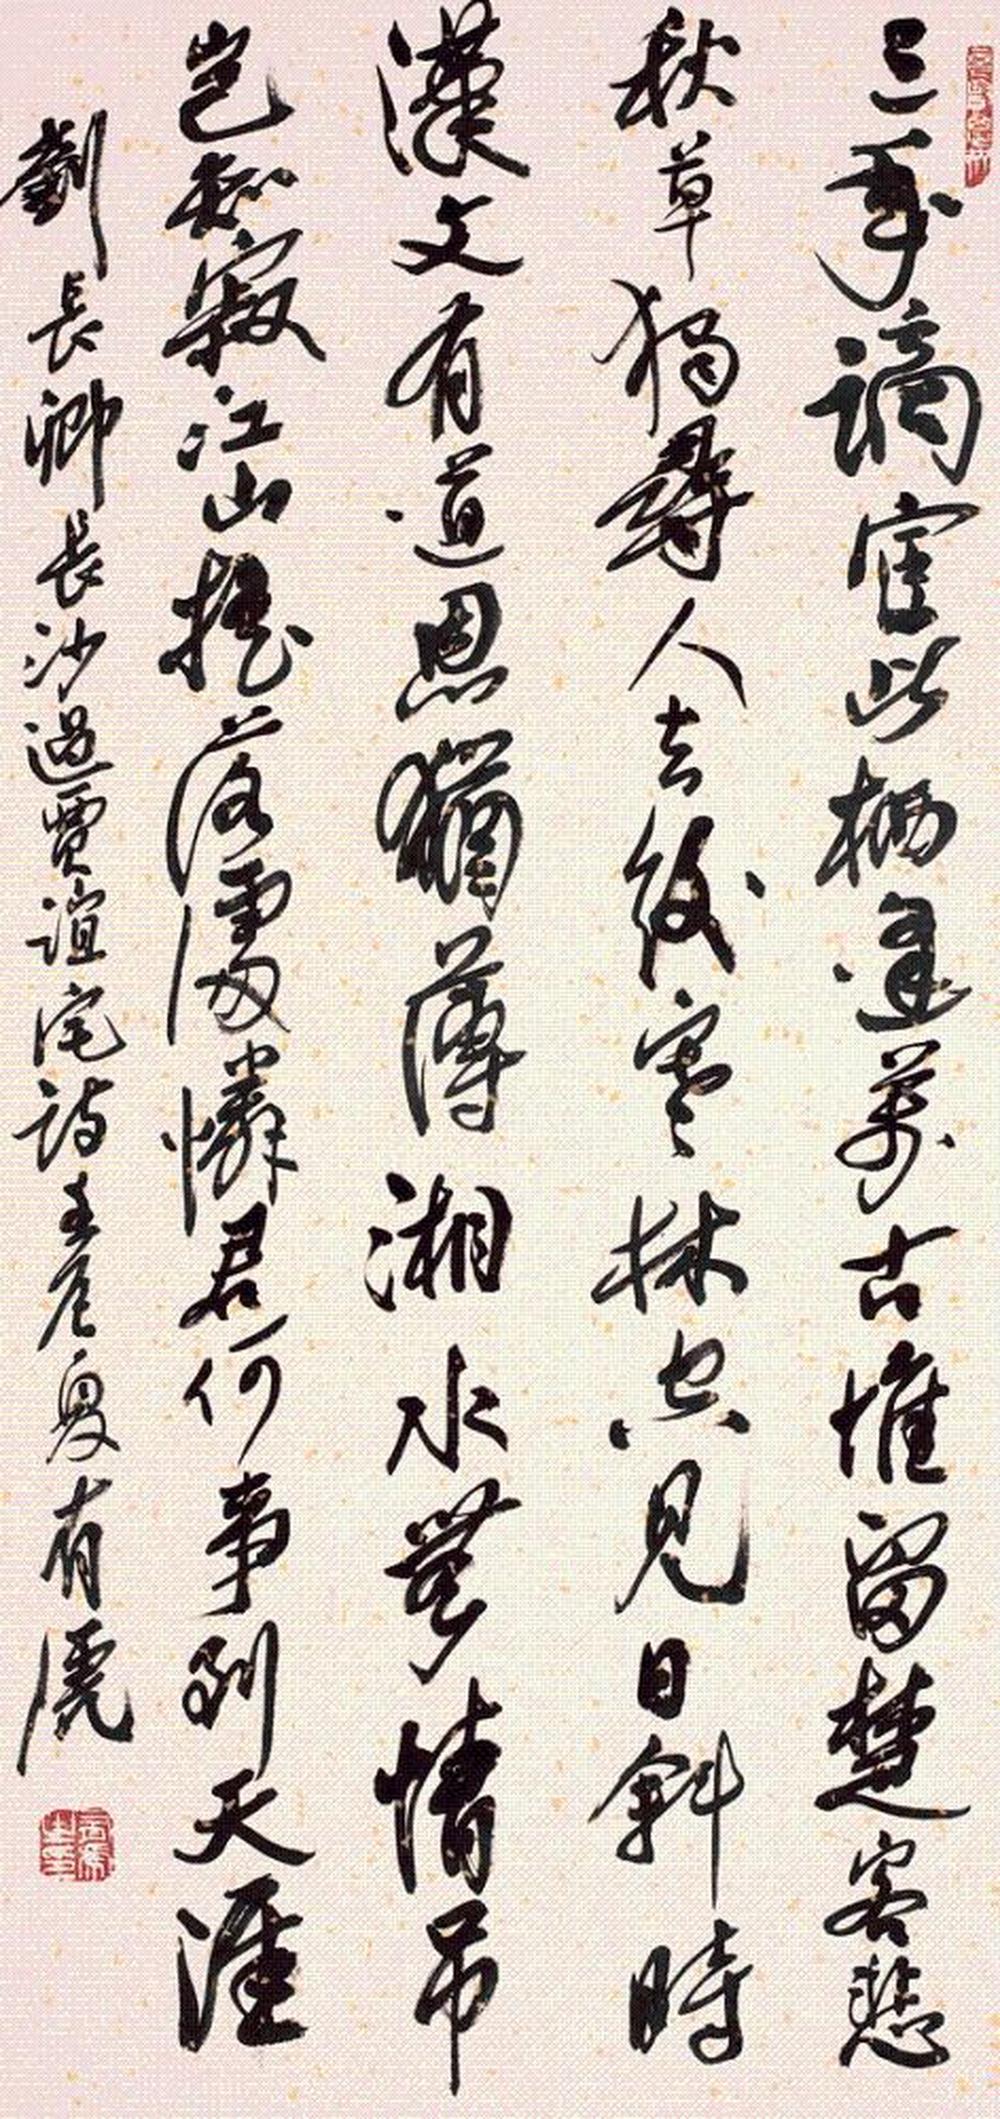 三年謫宦此栖遲萬古惟留楚客悲
秋草獨尋人去後寒林空見日斜時
漢文有道恩猶薄湘水無情吊
豈知寂江山搖落處憐君何事到天涯
劉長卿長沙過賈誼宅詩夏有